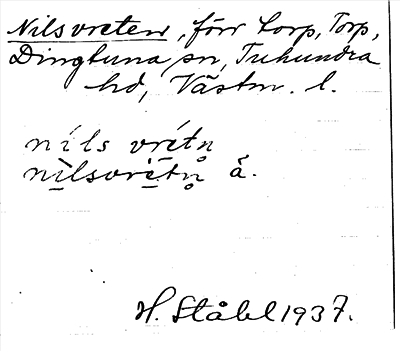 Nilsvreten, förr torp, Torp,
Dingtuna sn, Tuhundra
hd, Västm. l.
nils vrétn̥
nìlsvrètn̥ å.
H. Ståhl 1937.